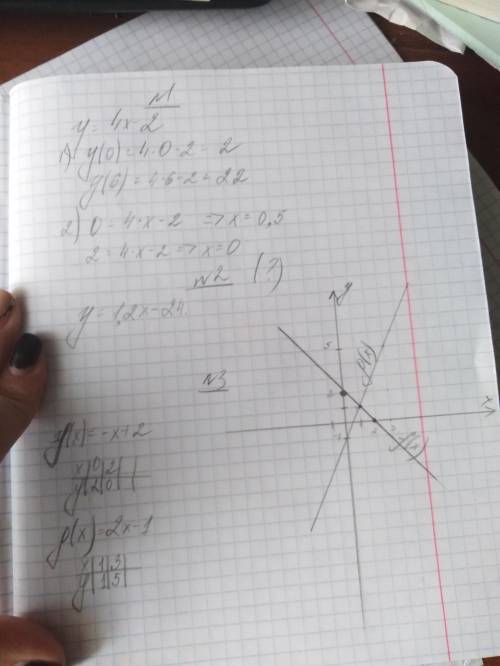 №1
y = 4x-2
1) y(0) = 4·0-2 = 2
y(6) = 4·6-2 = 22
2) 0 = 4·x-2 => x = 0,5
2 = 4·x-2 => x = 0
№2 (?)
y = 1,2x-24.
№3
f(x) = -x+2
x 0 2
y 2 0
g(x) = 2x-1
x 1 3
y 1 5
y
5
g(x)
x
2
f(x)